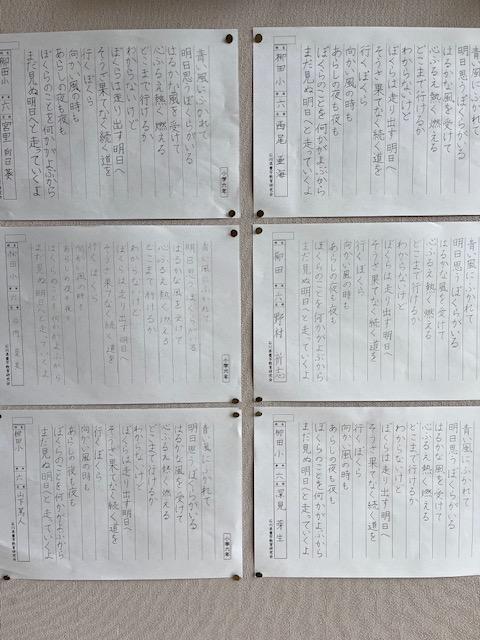 青い風にふかれて
明日思うぼくらがいる
はるかな風を受けて
心ふるえ熱く燃える
どこまで行けるか
わからないけど
ぼくらは走り出す明日へ
そうさ果てなく続く道を
行くぼくら
向かい風の時も
あらしの夜も夜も
ぼくらのことを何かがよぶから
まだ見ぬ明日へと走っていくよ
柳田小 六 西尾
小学六年
青い風にふかれて
明日思うぼくらがいる
はるかな風を受けて
心ふるえ熱く燃える
どこまで行けるか
わからないけど
ぼくらは走り出す明日へ
そうさ果てなく続く道を
行くぼくら
向かい風の時も
あらしの夜も夜も
ぼくらのことを何かがよぶから
まだ見ぬ明日へと走っていくよ
柳田小 六 宮里 向日葵
青い風にふかれて
明日思うぼくらがいる
はるかな風を受けて
心ふるえ熱く燃える
どこまで行けるか
わからないけど
ぼくらは走り出す明日へ
そうさ果てなく続く道を
行くぼくら
向かい風の時も
あらしの夜も夜も
ぼくらのことを何かがよぶから
まだ見ぬ明日へと走っていくよ
柳田 六 野村
小学六年
青い風にふかれて
明日思うぼくらがいる
はるかな風を受けて
心ふるえ熱く燃える
どこまで行けるか
わからないけど
ぼくらは走り出す明日へ
そうさ果てなく続く道を
行くぼくら
向かい風の時も
あらしの夜も夜も
ぼくらのことを何かがよぶから
まだ見ぬ明日へと走っていくよ
柳田小 六
青い風にふかれて
明日思うぼくらがいる
はるかな風を受けて
心ふるえ熱く燃える
どこまで行けるか
わからないけど
ぼくらは走り出す明日へ
そうさ果てなく続く道を
行くぼくら
向かい風の時も
あらしの夜も夜も
ぼくらのことを何かがよぶから
まだ見ぬ明日へと走っていくよ
柳田小 六 深見 芽生
小学六年
青い風にふかれて
明日思うぼくらがいる
はるかな風を受けて
心ふるえ熱く燃える
どこまで行けるか
わからないけど
ぼくらは走り出す明日へ
そうさ果てなく続く道を
行くぼくら
向かい風の時も
あらしの夜も夜も
ぼくらのことを何かがよぶから
まだ見ぬ明日へと走っていくよ
柳田小 六 山下